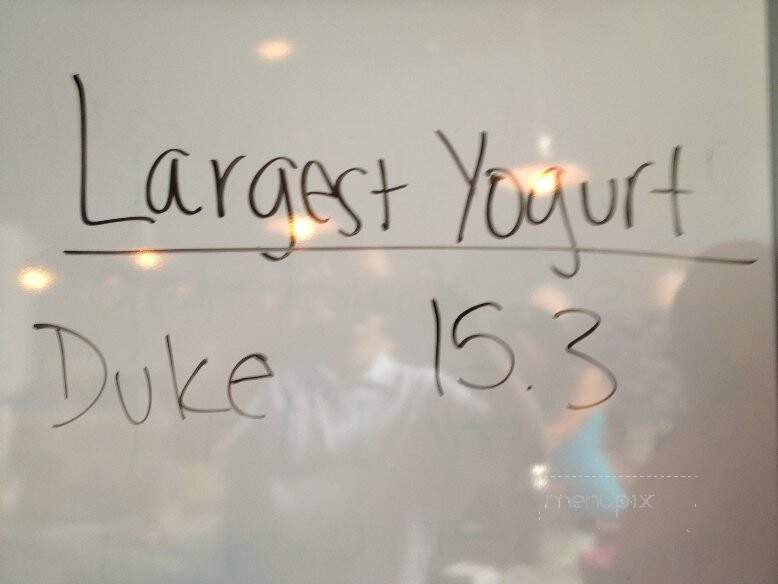 Largest Yogurt
Duke 15.3
menupix